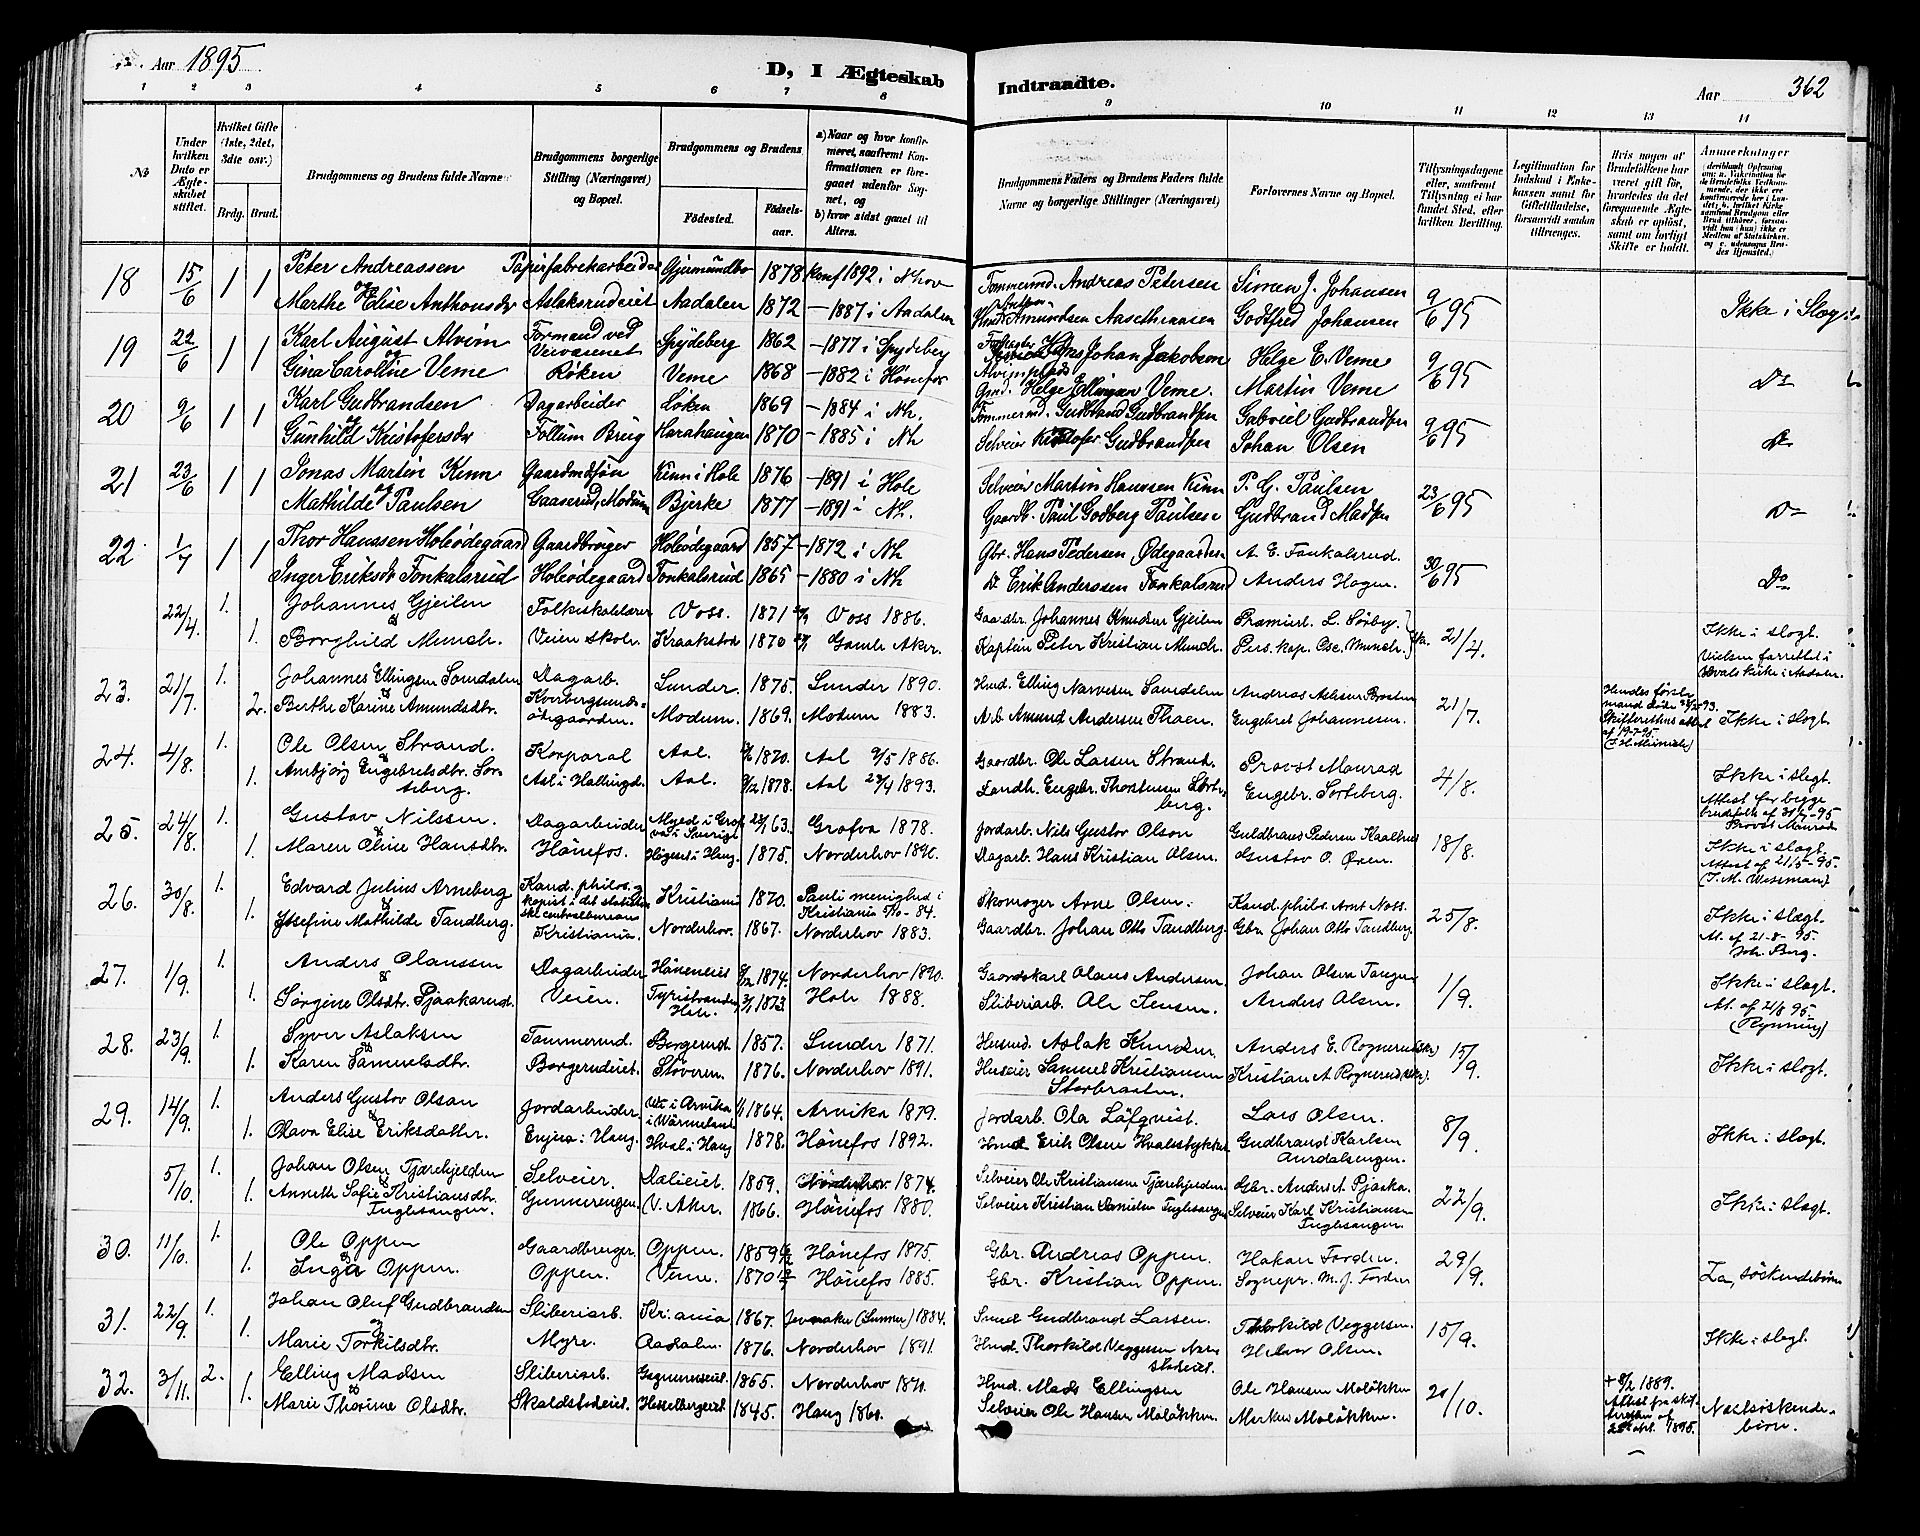 Aar 1895
D, I Ægteskab
Indtraadte.
Aar 362
1 2 3 4 5 6 7 8 9 10 11 12 13 14
No
Under hvilken Dato er Ægteskabet stiftet.
Hvilket Gifte (1ste, 2det, 3die osv.)
Brdg. Brud.
Brudgommens og Brudens fulde Navne
Brudgommens borgerlige Stilling (Næringsvei) og Bopæl.
Brudgommens og Brudens
Fødested.
Fødselsaar.
a) Naar og hvor konfirmeret, saafremt Konfirmationen er foregaaet udenfor Sognet, og
b) hvor sidst gaaet til Alters.
Brudgommens Faders og Brudens Faders fulde Navne og borgerlige Stillinger (Næringsvei)
Forlovernes Navne og Bopæl.
Tillysningsdagene eller, saafremt Tillysning ei har fundet Sted, efter hvilken Bevilling.
Legitimation for Indskud i Enkekassen samt for Giftetilladelse, forsaavidt saadan tiltrænges.
Hvis nogen af Brudefolkene har været gift før, hvorledes da det foregaaende Ægteskab er opløst, samt om lovligt Skifte er holdt.
Anmærkninger
18 15/6 1 1 Peter Andreassen Papirfabrekarbeider Gjermundbo 1878 konf 1892 i Nhov Tømmermd. Andreas Petersen Simen J. Johansen 9/6 95
og Marthe Elise Anthonsdr Aslaksrudeiet Aadalen 1872 – 1887 i Aadalen Anthon Amundsen Godtfred Johansen Ikke i Slog
19 22/6 1 1 Karl August Alvim Formand ved Veivæsenet Spydeberg 1862 – 1877 i Spydeberg Hans Johan Jakobsen Helge E. Veme 9/6 95
og Gina Caroline Veme Røken Veme 1868 – 1882 i Hønefos Gmd. Helge Ellingsen Veme. Martin Veme Do
20 9/6 1 1 Karl Gudbrandsen Dagarbeider Løken 1869 – 1884 i Nh. Tømmermd. Gudbrand Gudbrandsen Gabriel Gudbrandsen 9/6 95
og Gunhild Kristofersdr Follum Brug Harahaugen 1870 – 1885 i Nh Selveier Kristofer Gudbrandsen Johan Olsen Do
21 23/6 1 1 Jonas Martin Kinn Gaardmdsøn Kinn i Hole 1876 – 1891 i Hole Selveier Martin Hanssen Kinn P. G. Paulsen 23/6 95
og Mathilde Paulsen Gaaserud, Modum Bjerke 1877 – 1891 i Nh. Gaardb. Paul Godberg Paulsen Gudbrand Madsen Do
22 1/7 1 1 Thor Hanssen Holeødegaard Gaardbruger Holeødegaard 1857 – 1872 i Nh Gbr. Hans Pedersen, Ødegaarden A. E. Fonkalsrud. 30/6 95
Inger Eriksdr Fonkalsrud Holeødegaard Fonkalsrud 1865 – 1880 i Nh Do Erik Anderssen Fonkalsrud Anders Hagen. Do
22/4 1. Johannes Gjeilen Folkeskolelærer Voss. 1871 Voss 1886. Gaardbr. Johannes Knudsen Gjeilen Premierl. L. Sørby. 21/4.
& 1. Borghild Munch. Veien skole Kraakstad 1870 Gamle Aker. Kaptein Peter Kristian Munch. Pers. kap. Osc. Munch. Ikke i slogt. Vielsen forrettet i Hvals Kirke i Aadalen
23. 21/7 1. Johannes Ellingsen Somdalen Dagarb. Lunder. 1875. Lunder 1890. Hmd. Elling Narvesen Somdalen Andreas Aslesen Braaten 21/7
& 2. Berthe Karine Amundsdtr. Modum. 1869. Modum 1883. Arb. Amund Andersen Thoen. Engebret Johannesen. Hendes første mand døde 93. Skifterettens attest af 19-7-95 Ikke i slogt.
24. 4/8. 1. Ole Olsen Strand. Korporal Aal. 1870. Aal 9/5 1886. Gaardbr. Ole Larsen Strand. Provst Monrad 4/8.
& 1. Ambjørg Engebretsdtr. Sorteberg. Aal i Hallingd. Aal. 1878. Aal 23/4 1893. Landh. Engebr. Thorstensen Sorteberg. Engebr. Sorteberg. Ikke i slegt. Attest for begge brudefolk af 31/7-95 Provst Monrad
25. 24/8. 1. Gustav Nilssen. Dagarbeider 63. Grafva 1878. Jordarb. Nils Gustav Olson Guldbrand Pedersen 18/8.
& 1. Maren Oline Hansdtr. Hønefos. Hagens i Haug. 1875. Norderhov 1890. Dagarb. Hans Kristian Olsen. Gustav O. Øien. Ikke i slogt. Attest af 21/5-95.
26. 30/8. 1. Edvard Julius Arneberg Kand. philos. og kopist i det statistiske centralbureau Kristiania 1870. Pauli menighed i Kristiania -84. Skomager Arne Olsen. Kand. philos. Arnt Noss. 25/8.
& 1. Josefine Mathilde Tandberg. Kristiania. Norderhov. 1867. Norderhov 1883. Gaardbr. Johan Otto Tandberg. Gbr. Johan Otto Tandberg. Ikke i slogt. At. af 21-8-95. Joh. Berg.
27. 1/9. 1. Anders Olaussen Dagarbeider Høneneiet 1874. Norderhov 1890. Gaardskarl Olaus Andersen. Johan Olsen Tangen 1/9.
& 1. Jørgine Olsdtr. Pjaakarud. Veien. Tyristranden, Hole. 1873 Hole 1888. Sliberiarb. Ole Jensen. Anders Olsen. Ikke i slogt. At. af 21/8 95. (Rynning)
28. 23/9. 1. Syver Aslaksen Tømmermd. Borgerud. 1857. Lunder 1871. Husmd. Aslak Knudsen Anders E. Rognerud 15/9.
& 1. Karen Samuelsdtr. Borgerudeiet. Støveren. 1876. Norderhov 1891. Huseier Samuel Kristiansen Storbraaten. Kristian A. Rognerud Ikke i slogt.
29. 14/9. 1. Anders Gustav Olson Jordarbeider. i Arvika i Wärmeland 1864. Arvika 1879. Jordarb. Ola Löfqvist. Lars Olsen. 8/9.
& 1. Olava Elise Eriksdatter. i Haug. Hval i Haug 1878. Hønefos 1892. Hmd Erik Olsen Hvalsstykket Gudbrand Karlsen Aurdalsengen. Ikke i slogt.
5/10. 1. Johan Olsen Tjærehjelden Selveier. Dælieiet. 1859. Norderhov 1874. Selveier Ole Kristiansen Tjærehjelden. Gbr. Anders A. Pjaaka. 22/9.
& 1. Annette Sofie Kristiansdtr. Fuglesangen. Gunnerengen. V. Aker. 1866. Hønefos 1880. Selveier Kristian Danielsen Fuglesangen Selveier Karl Kristiansen Fuglesangen. Ikke i slogt.
30. 11/10. 1. Ole Oppen Gaardbruger. Oppen. 1859 Hønefos 1875. Gbr. Andreas Oppen. Hakan Forden. 29/9.
& 1. Inga Oppen. Oppen. Veme. 1870 Hønefos 1885. Gbr. Kristian Oppen. Sognepr. M. J. Forden Ja, søskendebørn
31. 22/9. 1. Johan Oluf Gudbrandsen Sliberiarb. Kr:ania 1867. Jevnaker (Lunner) 1884. Smed Gudbrand Larsen. Thorkild Veggersen. 15/9.
og 1. Marie Torkilsdtr. Myre. Aadalen. 1876. Norderhov 1891. Hmd. Thorkild Veggersen Halvor Olsen. Ikke i slogt.
32. 3/11. 2. Elling Madsen Sliberiarb. 1855. Norderhov 1870. Hmd. Mads Ellingsen Ole Hansen Moløkken 20/10.
& 1. Marie Thorine Olsdtr. Skoldstadeiet. Hesselbergeiet. 1845. Haug 1860. Selveier Ole Hansen Moløkken. Markus Moløkken. + 8/2 1889. Attest fra skifteretten af 1895. Næstsøskendebørn.